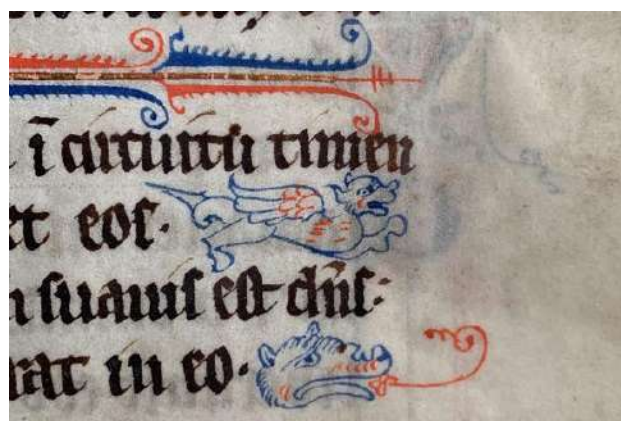 ī circuitu timen
et eos.
suauis est dñs:
rat in eo.